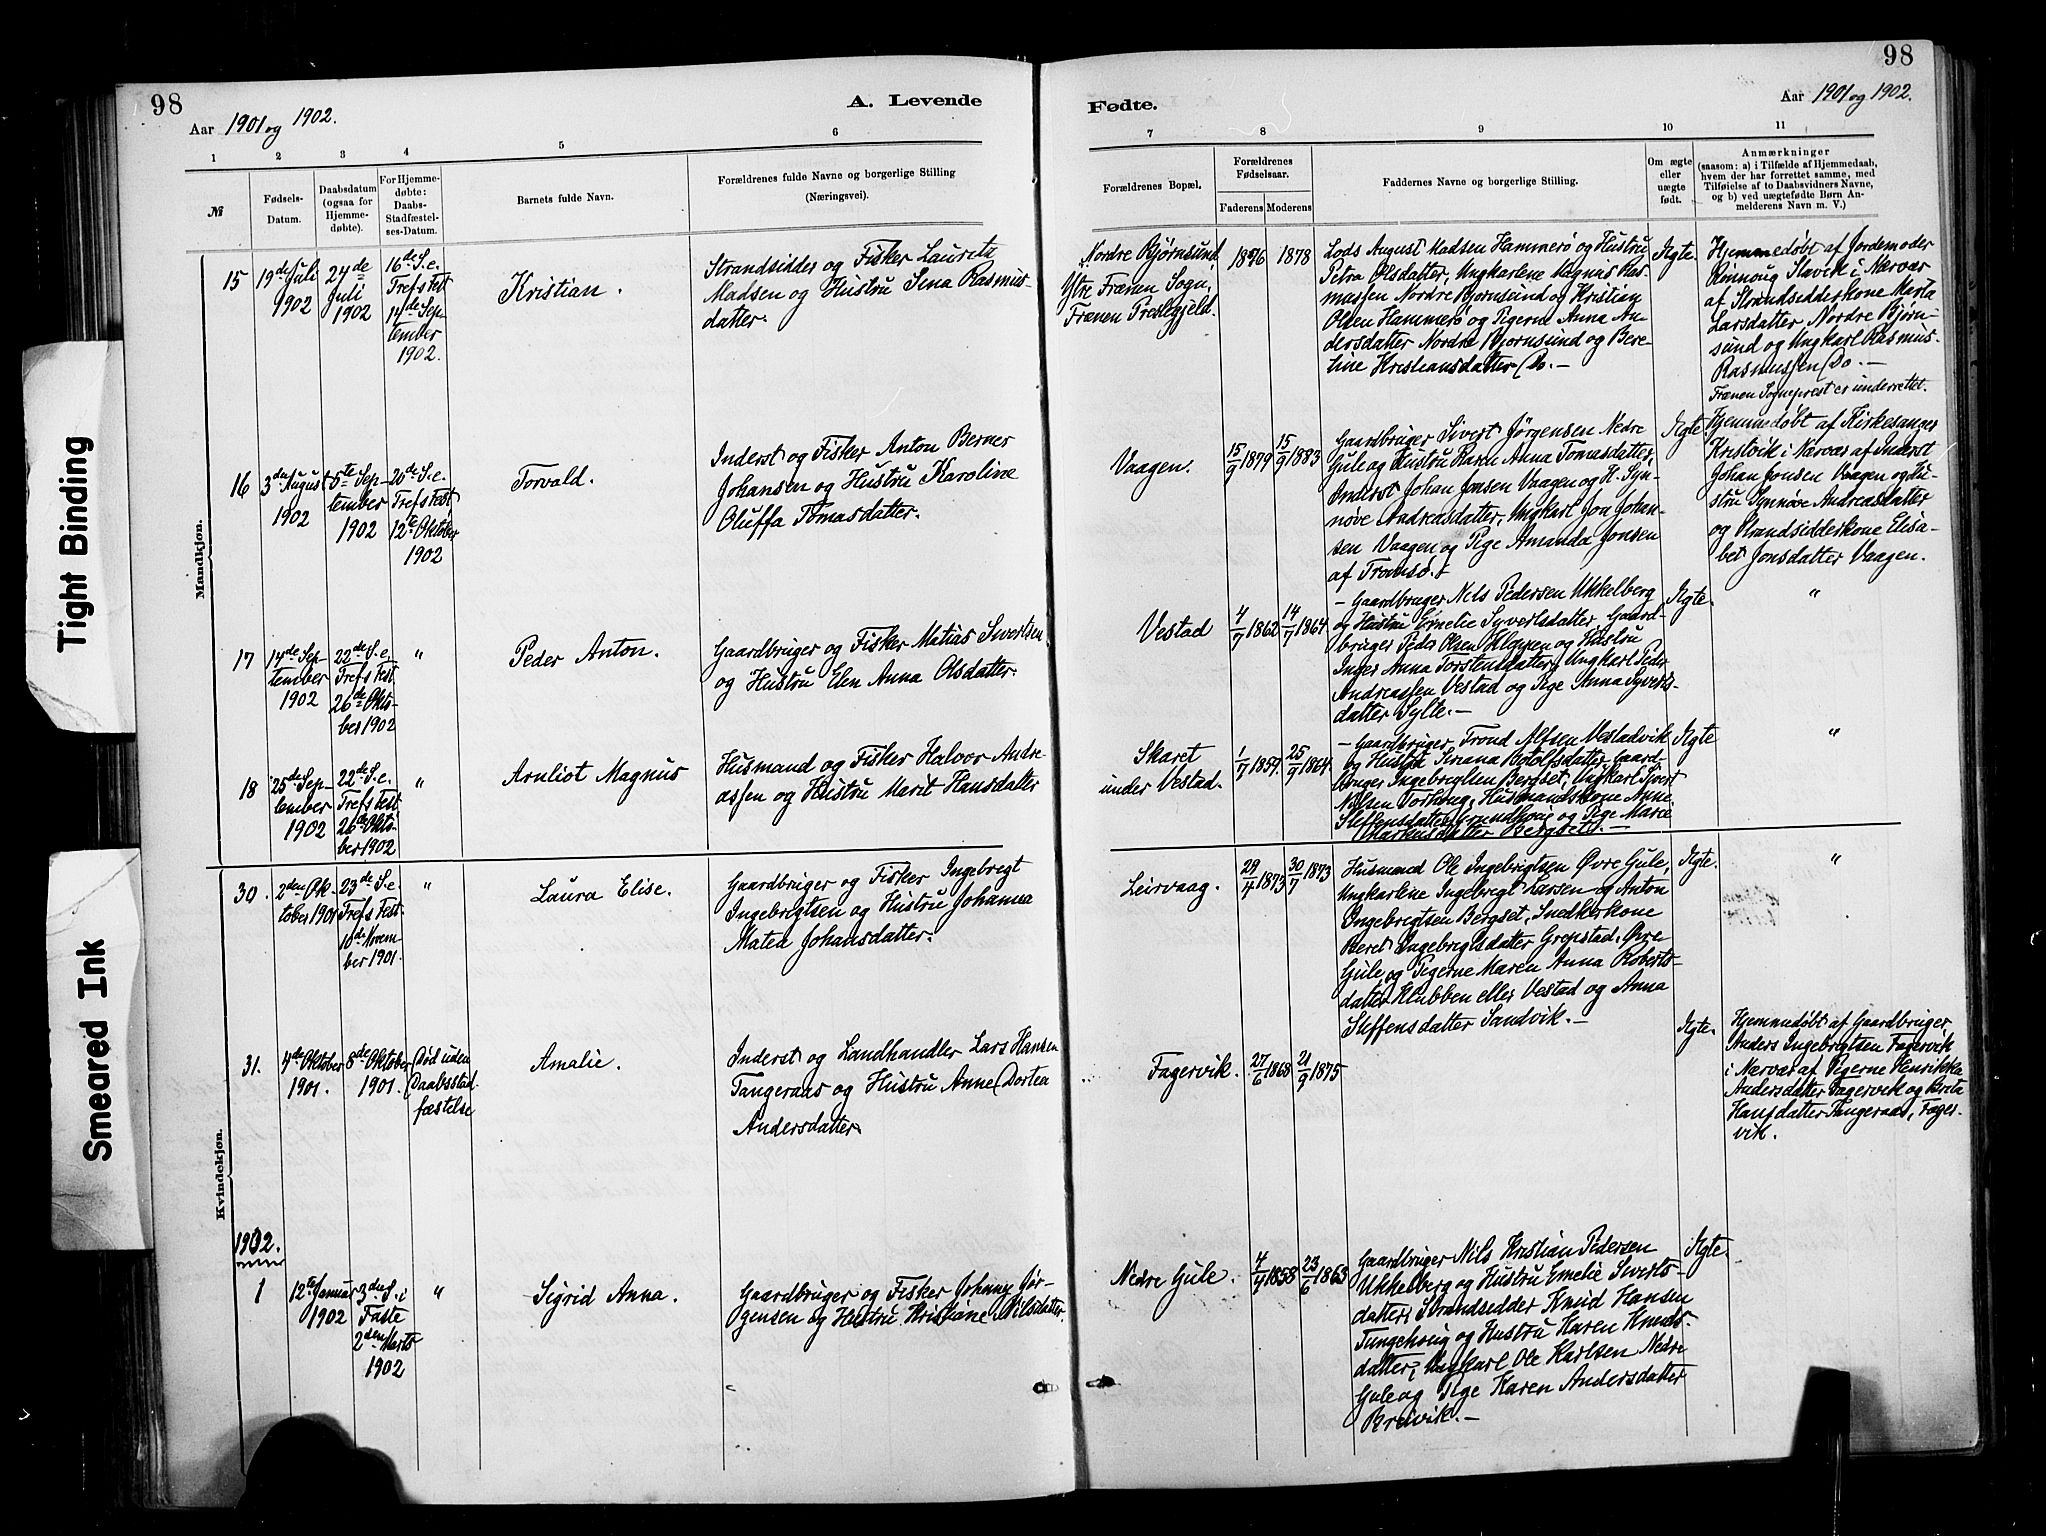 98
98
A. Levende
Fødte.
Aar 1901 og 1902.
Aar 1901 og 1902.
1 2 3 4 5 6 7 8 9 10 11
№
Fødsels-
Datum.
Daabsdatum
(ogsaa for
Hjemme-
døbte).
For Hjemme-
døbte:
Daabs-
Stadfæstel-
ses-Datum.
Barnets fulde Navn.
Forældrenes fulde Navne og borgerlige Stilling
(Næringsvei).
Forældrenes Bopæl.
Forældrenes
Fødselsaar.
Faderens Moderens
Faddernes Navne og borgerlige Stilling.
Om ægte
eller
uægte
født.
Anmærkninger
(saasom: a) i Tilfælde af Hjemmedaab,
hvem der har forrettet samme, med
Tilføielse af to Daabsvidners Navne,
og b) ved uægtefødte Børn An-
melderens Navn m. V.)
Mandkjøn.
15
19de Juli
1902
24de
Juli
1902
16de S. e.
Trefs Fest
14de Sep-
tember
1902.
Kristian.
Strandsidder og Fisker Lauritz
Madsen og Hustru Sena Rasmus-
datter.
Nordre Bjørnsund,
Ytre Frænen Sogn,
Frænen Prestegjeld.
1876
1878
Lods August Madsen Hammerø og Hustru
Petra Olsdatter, Ungkarlene Magnus Ras-
mussen Nordre Bjørnsund og Kristian
Olsen Hammerø og Pigerne Anna An-
dersdatter Nordre Bjørnsund og Bere-
tine Kristiansdatter Do. —
Ægte.
Hjemmedøbt af Jordemoder
Rinnoug Slavik i Nærvær
af Strandsidderkone Marta
Larsdatter Nordre Bjørn-
sund og Ungkarl Rasmus
Rasmussen Do. —
Frænen Sogneprest er underrettet.
16
3die August
1902
5te Sep-
tember
1902
20de S. e.
Trefs Fest,
12te Oktober
1902
Torvald.
Inderst og Fisker Anton Berner
Johansen og Hustru Karoline
Oluffa Tomasdatter.
Vaagen.
15/9 1879
15/9 1883
Gaardbruger Sivert Jørgensen Nedre
Gule og Hustru Karen Anna Tomasdatter,
Inderst Johan Jonsen Vaagen og H. Syn-
nøve Andreasdatter, Ungkarl Jon Johan-
sen Vaagen og Pige Amanda Jonsen
af Tromsø. —
Ægte.
Hjemmedøbt af Kirkesanger
Kristvik i Nærvær af Inderst
Johan Jonsen Vaagen og Hu-
stru Synnøve Andreasdatter
og Strandsidderkone Elisa-
bet Jonsdatter Vaagen.
17
14de Sep-
tember
1902
22de S. e.
Trefs Fest
26de Okto-
ber 1902
"
Peder Anton.
Gaardbruger og Fisker Matias Sivertsen
og Hustru Elen Anna Olsdatter.
Vestad
4/7 1862
14/7 1864
— Gaardbruger Nels Pedersen Ukkelberg
og Hustru Emelie Syvertsdatter, Gaard-
bruger Peder Olsen Klippen og Hustru
Inger Anna Torstensdatter, Ungkarl Peder
Andreassen Vestad og Pige Anna Syverts-
datter Sylte. —
Ægte.
"
18
25de Sep-
tember
1902
22de S. e.
Trefs Fest
26de Okto-
ber 1902
"
Arnliot Magnus
Husmand og Fisker Halvor Andre-
assen og Hustru Marit Hansdatter
Skaret
under Vestad.
1/7 1859.
25/9 1864.
— Gaardbruger Trond Nelsen Vestadvik
og Hustru Sirana Botolfsdatter, Gaard-
bruger Ingebrigtsen Bergset, Ungkarl Sivert
Nilsen Torhoug, Husmandskone Anne
Steffensdatter Grundhoug og Pige Marie
Markusdatter Bergset. —
Ægte
"
Kvindekjøn.
30.
2den Ok-
tober 1901
23de S. e
Trefs Fest
10de Novem-
ber 1901.
"
Laura Elise.
Gaardbruger og Fisker Ingebregt
Ingebrigtsen og Hustru Johanna
Matea Johansdatter.
Leirvaag.
29/4 1873
30/7 1873
Husmand Ole Ingebrigtsen Øvre Gule,
Ungkarlene Ingebregt Larsen og Anton
Ingebrigtsen Bergset, Snedkerkone
Beret Ingebrigtsdatter Grepstad, Øvre
Gule og Pigerne Maren Anna Roberts-
datter Klubben eller Vestad og Anna
Steffensdatter Sandvik. —
Ægte.
"
31.
4de Oktober
1901.
8de Oktober
1901.
Død uden
Daabsstad-
fæstelse
Amalie.
Inderst og Landhandler Lars Hansen
Tangeraas og Hustru Anne Dortea
Andersdatter.
Fagervik.
27/6 1868
21/9 1875
Ægte.
Hjemmedøbt af Gaardbruger
Anders Ingebrigtsen Fagervik
i Nærvær af Pigerne Henrikka
Andersdatter Fagervik og Marta
Hansdatter Tangeraas, Fager-
vik.
1902.
1
12te Januar
1902
3die S. i
Faste
2den Marts
1902
"
Sigrid Anna.
Gaardbruger og Fisker Johan Jør-
gensen og Hustru Kristiane Nilsdatter.
Nedre Gule.
4/4 1858
23/6 1863
Gaardbruger Nils Kristian Pedersen
Ukkelberg og Hustru Emelie Siverts-
datter, Strandsedder Knud Hansen
Tungehoug og Hustru Karen Knuds-
datter, Ungkarl Ole Karlsen Nedre
Gule og Pige Karen Andersdatter
Breivik. —
Ægte.
Tight Binding
Smeared Ink